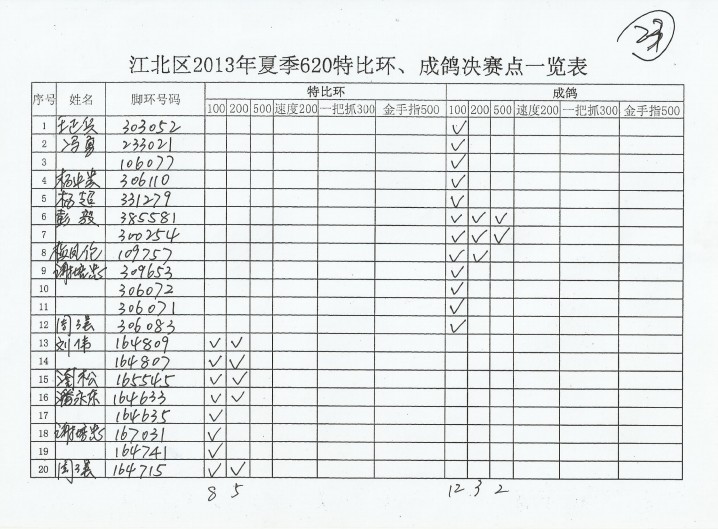 23
江北区2013年夏季620特比环、成鸽决赛点一览表
序号 姓名 脚环号码 特比环 成鸽
100 200 500 速度200 一把抓300 金手指500 100 200 500 速度200 一把抓300 金手指500
1 303052 ✓
2 冯勇 233021 ✓
3 106077 ✓
4 306110 ✓
5 杨超 331279 ✓
6 彭毅 385581 ✓ ✓ ✓
7 300254 ✓ ✓ ✓
8 109757 ✓ ✓
9 309653 ✓
10 306072 ✓
11 306071 ✓
12 周强 306083 ✓
13 刘伟 164809 ✓ ✓
14 164807 ✓ ✓
15 165545 ✓ ✓
16 164633 ✓ ✓
17 164635 ✓
18 167031 ✓
19 164741 ✓
20 周强 164715 ✓ ✓
8 5 12 3 2